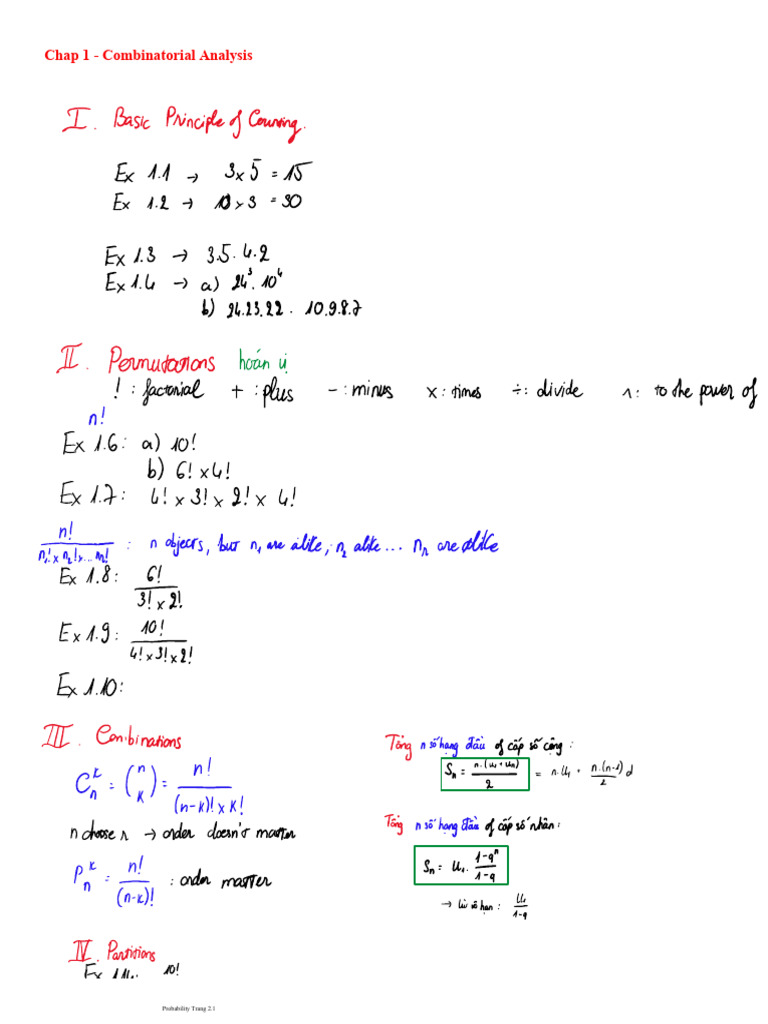 Chap 1 - Combinatorial Analysis
I. Basic Principle of Counting.
Ex 1.1 → 3 x 5 = 15
Ex 1.2 → 10 x 3 = 30
Ex 1.3 → 3.5.4.2
Ex 1.4 → a) 24³.10⁴
b) 24.23.22.10.9.8.7
II. Permutations hoán vị
! : factorial + : plus − : minus x : times ÷ : divide ^ : to the power of
n!
Ex 1.6: a) 10!
b) 6! x 4!
Ex 1.7: 4! x 3! x 2! x 4!
n! / (n₁! x n₂! x ... nr!) : n objects, but n₁ are alike, n₂ alike... nr are alike
Ex 1.8: 6! / (3! x 2!)
Ex 1.9: 10! / (4! x 3! x 2!)
Ex 1.10:
III. Combinations
Cₙᵏ = (n k) = n! / ((n-k)! x k!)
n choose r → order doesn't matter
Pₙᵏ = n! / (n-k)! : order matter
Tổng n số hạng đầu of cấp số cộng:
Sₙ = n.(u₁ + uₙ) / 2 = n.u₁ + n.(n-1)/2 d
Tổng n số hạng đầu of cấp số nhân:
Sₙ = u₁. (1-qⁿ) / (1-q)
→ lùi vô hạn: u₁ / (1-q)
IV. Partitions
Ex 1.11: 10!
Probability Trang 2.1